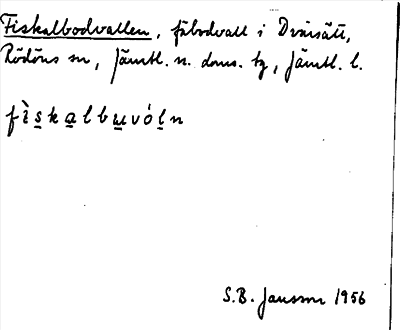 Fiskalbodvallen, fäbodvall i Dvärsätt,
Rödöns sn, Jämtl. n. doms. tg, Jämtl. l.
fìs̲ka̲lbu̲vól̲n
S.B. Jansson 1956